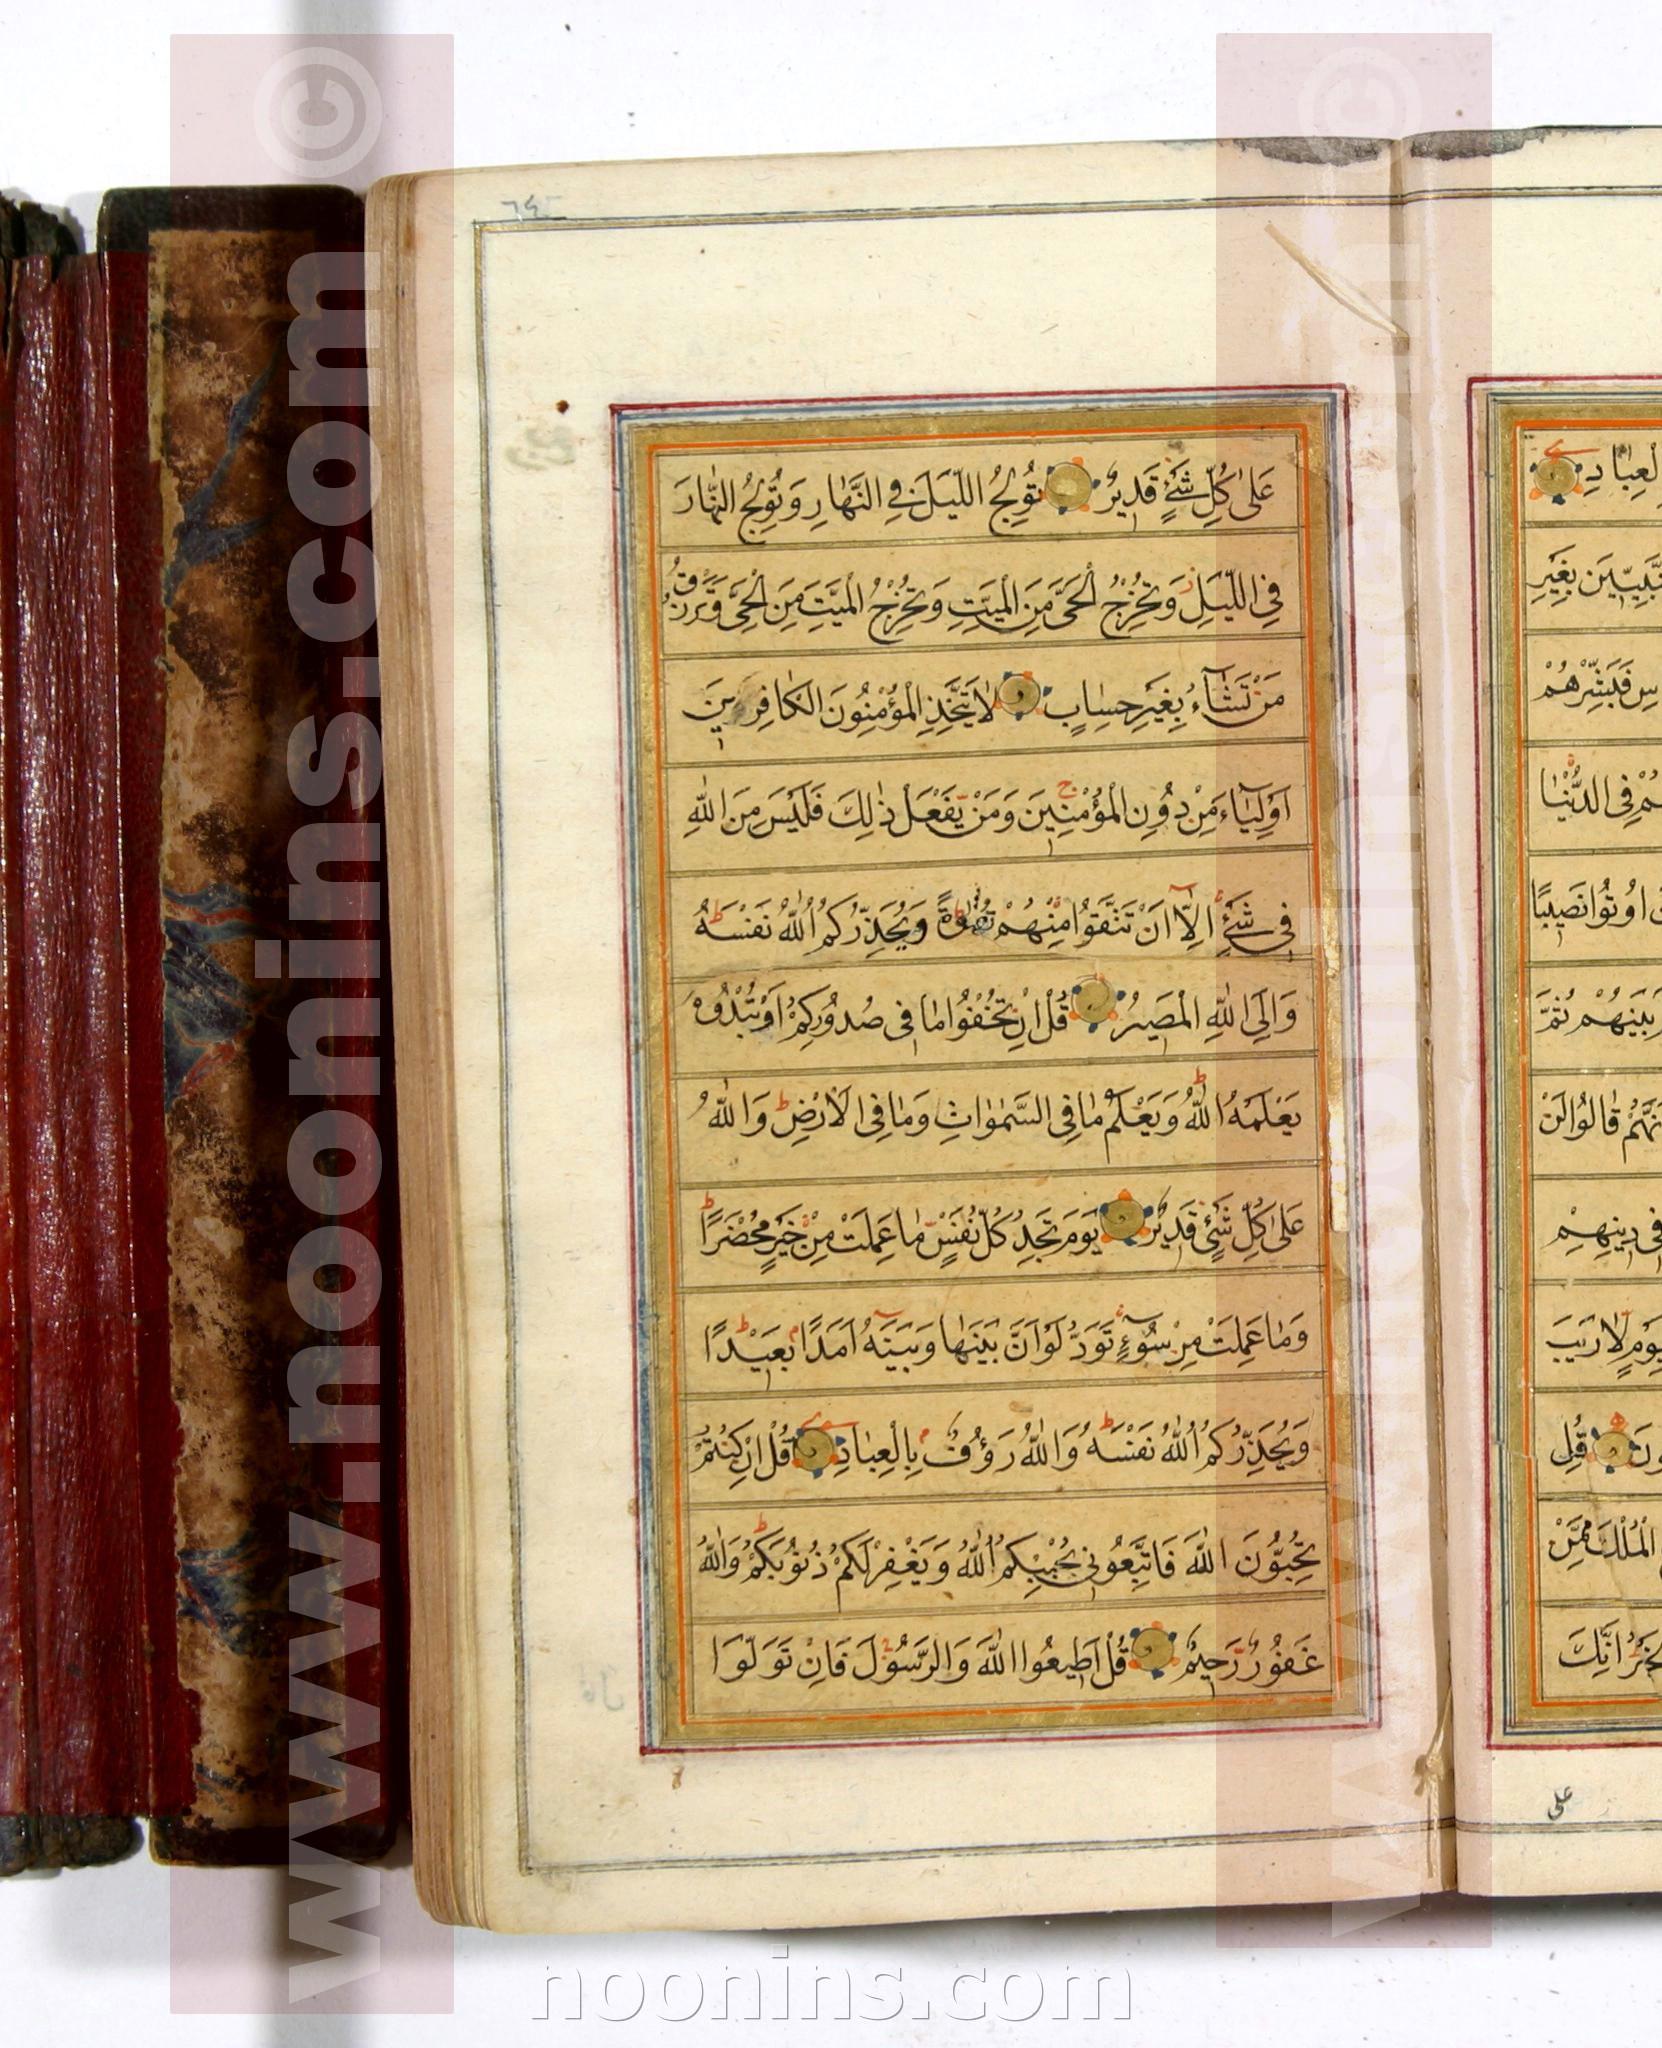 عَلىٰ كُلِّ شَیْءٍ قَدِيرٌ تُولِجُ اللَّيْلَ فِي النَّهٰارِ وَتُولِجُ النَّهٰارَ
فِي اللَّيْلِ وَتُخْرِجُ الْحَیَّ مِنَ الْمَيِّتِ وَتُخْرِجُ الْمَيِّتَ مِنَ الْحَیِّ وَتَرْزُقُ
مَنْ تَشٰآءُ بِغَيْرِ حِسٰابٍ لٰا يَتَّخِذِ الْمُؤْمِنُونَ الْكٰافِرِينَ
اَوْلِيٰآءَ مِنْ دُونِ الْمُؤْمِنِينَ وَمَنْ يَفْعَلْ ذٰلِكَ فَلَيْسَ مِنَ اللّٰهِ
فِي شَیْءٍ اِلّٰآ اَنْ تَتَّقُوا مِنْهُمْ تُقٰوةً وَيُحَذِّرُكُمُ اللّٰهُ نَفْسَهُ
وَاِلَی اللّٰهِ الْمَصِيرُ قُلْ اِنْ تُخْفُوا مٰا فِی صُدُورِكُمْ اَوْ تُبْدُوهُ
يَعْلَمْهُ اللّٰهُ وَيَعْلَمُ مٰا فِی السَّمٰوٰاتِ وَمٰا فِی الْاَرْضِ وَاللّٰهُ
عَلىٰ كُلِّ شَیْءٍ قَدِيرٌ يَوْمَ تَجِدُ كُلُّ نَفْسٍ مٰا عَمِلَتْ مِنْ خَيْرٍ مُحْضَرًا
وَمٰا عَمِلَتْ مِنْ سُوٓءٍ تَوَدُّ لَوْ اَنَّ بَيْنَهٰا وَبَيْنَهُ اَمَدًا بَعِيْدًا
وَيُحَذِّرُكُمُ اللّٰهُ نَفْسَهُ وَاللّٰهُ رَؤُفٌ بِالْعِبٰادِ قُلْ اِنْ كُنْتُمْ
تُحِبُّونَ اللّٰهَ فَاتَّبِعُونِی يُحْبِبْكُمُ اللّٰهُ وَيَغْفِرْ لَكُمْ ذُنُوبَكُمْ وَاللّٰهُ
غَفُورٌ رَحِيمٌ قُلْ اَطِيعُوا اللّٰهَ وَالرَّسُولَ فَاِنْ تَوَلَّوْا
لْعِبٰادِ
النَّبِيِّينَ بِغَيْرِ
سِ فَبَشِّرْهُمْ
هُمْ فِی الدُّنْيٰا
اُوتُوا نَصِيبًا
بَيْنَهُمْ ثُمَّ
نَّهُمْ قٰالُوا لَنْ
فِی دِينِهِمْ
لِيَوْمٍ لٰا رَيْبَ
ونَ قُلِ
الْمُلْكَ مِمَّنْ
الْخَيْرُ اِنَّكَ
علی
www.noonins.com ©
noonins.com